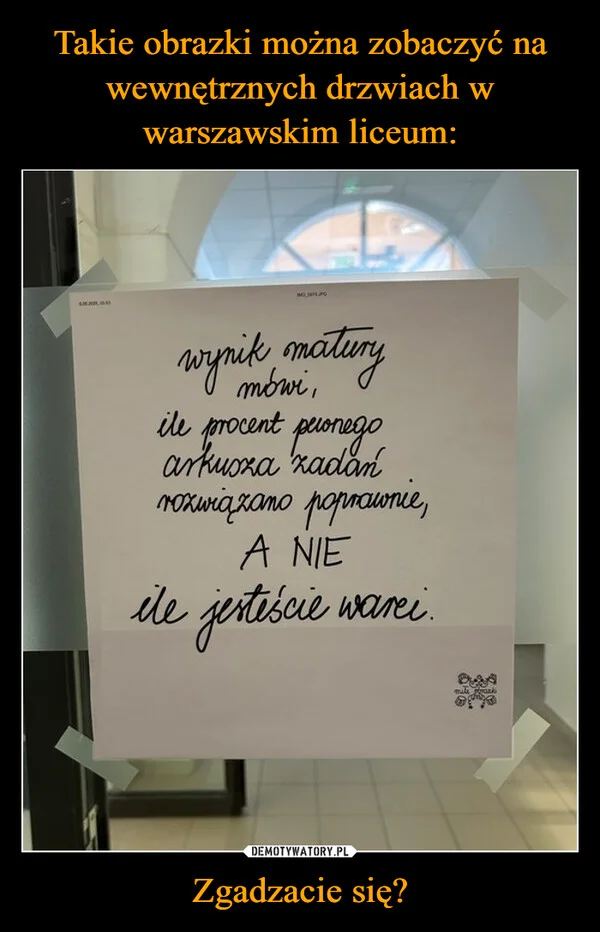 Takie obrazki można zobaczyć na
wewnętrznych drzwiach w
warszawskim liceum:
wynik matury
mówi,
ile procent pewnego
arkusza zadań
rozwiązano poprawnie,
A NIE
ile jesteście warci.
miłe obrazki
DEMOTYWATORY.PL
Zgadzacie się?